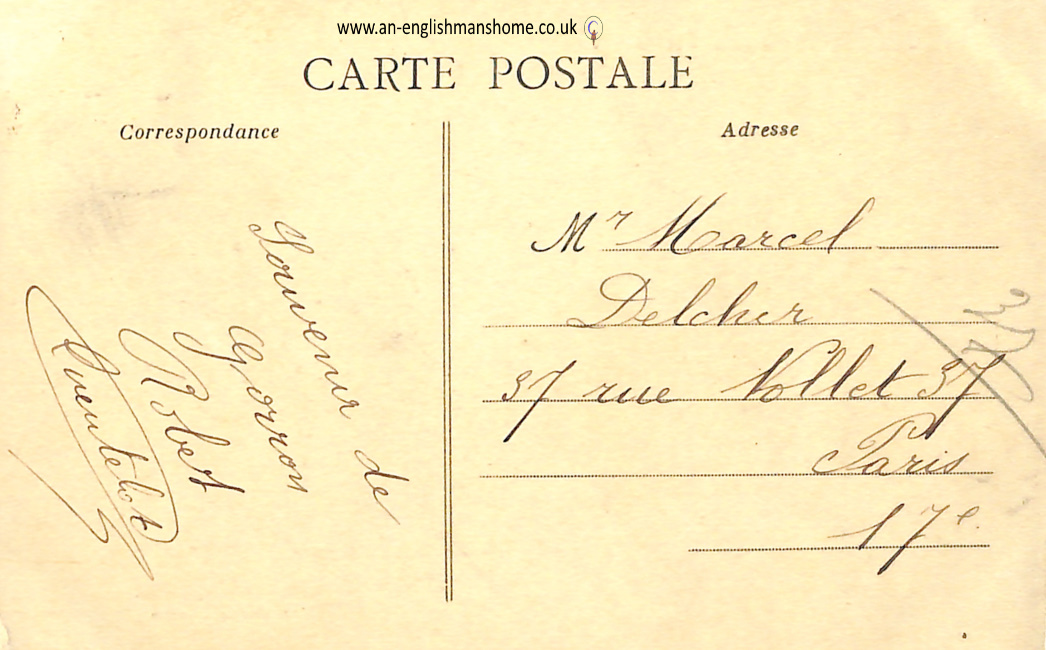 www.an-englishmanshome.co.uk
CARTE POSTALE
Correspondance
Adresse
Souvenir de
Gorron
Robert
Mr Marcel
Delcher
37 rue Nollet 37
Paris
17e.